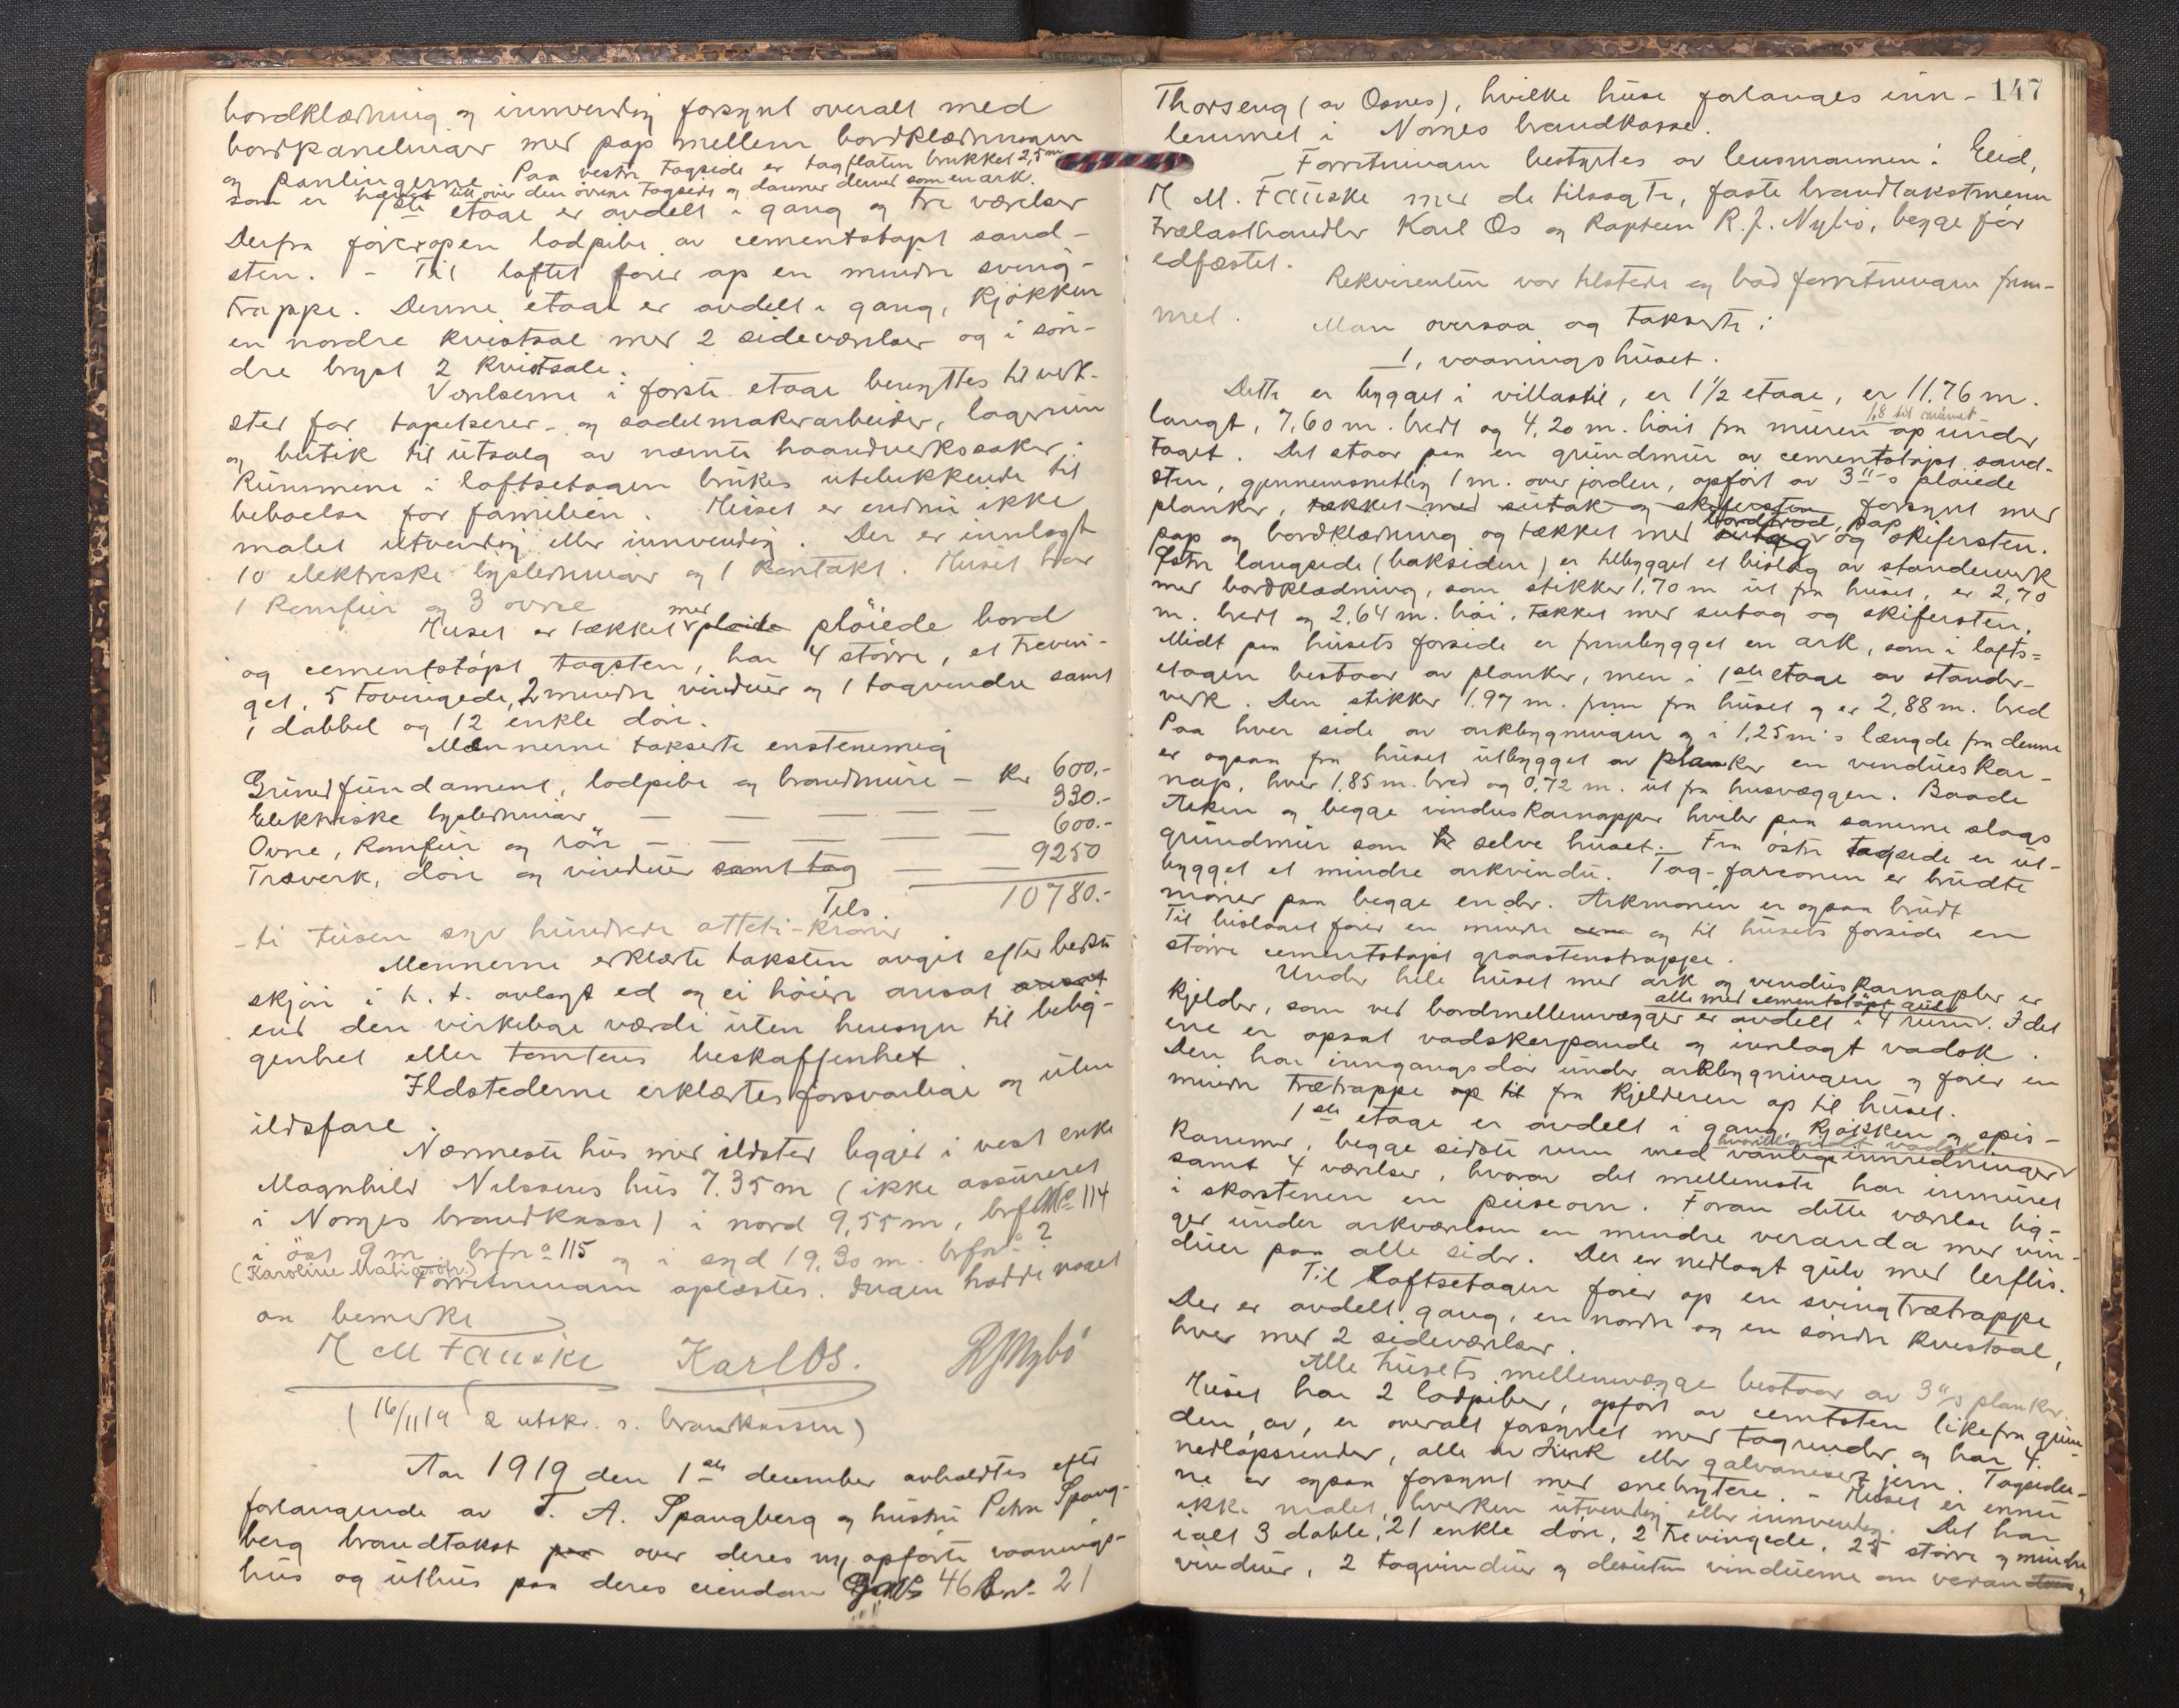 bordklædning og innvendig forsynt overalt med
bordpanelinger med pap mellem bordklædningen
og panlingerne. Paa vestre tagside er tagflaten brukket 2,5 m
som er hævet ut over den övrige tagside og danner derved som en ark.
1ste etage er avdelt i gang og tre værelser
Derfra förer open lodpibe av cementstöpt sand-
sten. – Til loftet förer op en mindre sving-
trappe. Denne etage er avdelt i gang, kjökken
en nordre kvistsal med 2 sideværelser og i sön-
dre bryst 2 kvistsale.
Værelserne i förste etage benyttes til verk-
sted for tapetserer- og sadelmakerarbeider, lagerrum
og butik til utsalg av nævnte haandverkssaker.
Rummene i loftsetagen brukes utelukkende til
beboelse for familien. Huset er endnu ikke
malet utvendig eller innvendig. Der er innlagt
10 elektriske lysledninger og 1 kontakt. Huset har
1 komfur og 3 ovne
Huset er tækket med pløide plöiede bord
og cementstöpt tagsten, har 4 större, et trevin-
get, 5 tovingede, 2 mindre vinduer og 1 tagvindu samt
1 dobbel og 12 enkle döre.
Mænnerne takserte enstemmig
Grundfundament, lodpibe og brandmure – kr 600.-
Elektriske lysledninger — — — — 330.-
Ovne, komfur og rör — — — — 600.-
Træverk, döre og vinduer samt tag — — 9250
Tils. 10780.-
- ti tusen syv hundrede otteti - kroner
Mennerne erklærte taksten avgit efter bedste
skjön i h. t. avlagt ed og ei höiere ansat ansat
end den virkelige værdi uten hensyn til belig-
genhet eller tomtens beskaffenhet
Ildstederne erklærtes forsvarlige og uten
ildsfare.
Nærmeste hus med ildsted ligger i vest enke
Magnhild Nilssens hus 7.35 m (ikke assureret
i Norges brandkasse) i nord 9,55 m, brf.No 114
i öst 9 m brfno 115 og i syd 19,30 m. brfno ?
(Karoline Mati)
Forretningen oplæstes. Ingen hadde noget
at bemerke
M M Fauske Karl Os. R J Nybö
(16/11 19 2 utskr. s. brankassen)
Aar 1919 den 1ste december avholdtes efter
forlangende av T. A. Spangberg og hustru Petra Spang-
berg brandtakst paa over deres ny opförte vaanings-
hus og uthus paa deres eiendom G.No 46 Bn. 21
147
Thorseng (av Osnes), hvilke huse forlanges inn-
lemmet i Norges brandkasse.
Forretningen bestyrtes av lensmannen i Eid,
M M. Fauske med de tilsagte, faste brandtakstmenn
trælasthandler Karl Os og kaptein R. J. Nybö, begge för
edfæstet.
Rekvirenten var tilstede og bad forretningen frem-
met.
Man oversaa og takserte:
1, vaaningshuset.
Dette er bygget i villastil, er 1½ etage, er 11,76 m.
langt, 7,60 m. bredt og 4,20 m. höit fra muren op under
taget. Det staar paa en grundmur av cementstöpt sand-
sten, gjennemsnetlig 1 m. over jorden, opfört av 3"s plöiede
planker, tækket med sutak og skifersten forsynt med
pap og bordklædning og tækket med sutag bordtrod, pap og skifersten.
Östre langside (baksiden) er tilbygget et bislag av standerverk
med bordklædning, som stikker 1,70 m ut fra huset, er 2,70
m. bredt og 2,64 m. höi, tækket med sutag og skifersten.
Midt paa husets forside er frembygget en ark, som i lofts=
etagen bestaar av planker, men i 1ste etage av stander-
verk. Den stikker 1,97 m. frem fra huset og er 2,88 m. bred
Paa hver side av arkbygningen og i 1,25 m's længde fra denne
er ogsaa fra huset utbygget av planker en vindueskar-
nap, hver 1,85 m. bred og 0,72 m. ut fra husvæggen. Baade
Arken og begge vinduskarnapper hviler paa samme slags
grundmur som selve huset. – Fra östre tagside er ut-
bygget et mindre arkvindu. Tag-faconen er brudte
möner paa begge ender. Arkmönen er ogsaa brudt
Til bislaget förer en mindre og til husets forside en
större cementstöpt graastenstrappe.
Under hele huset med ark og vinduskarnapler er
kjelder, som ved bordmellemvægger er avdelt i 4 rum alle med cementstöpt gulv. I det
ene er opsat vadskerpande og innlagt vadsk.
Den har inngangsdör under arkbygningen og förer en
mindre trætrappe op til fra kjelderen op til huset.
1ste etage er avdelt i gang, kjökken og spis-
kammer, begge sidste rum med vanlige innredninger
samt 4 værelser, hvorav det mellemste har inmuret
i skorstenen en peiseovn. Foran dette værelse lig-
ger under arkværelsen en mindre veranda med vin-
duer paa alle sider. Der er nedlagt gulv med lerflis.
Til loftsetagen förer op en svingtrætrappe
Der er avdelt gang, en nordre og en söndre kvistsal,
hver med 2 sideværelser.
Alle husets mellemvægge bestaar av 3"s planker.
Huset har 2 lodpiber, opfört av cemtsten like fra grun-
den av, er overalt forsynet med tagrender og har 4
nedlöpsrender, alle av zink eller galvanisert jern. Tagsider-
ne er ogsaa forsynt med snebrytere. – Huset er ennu
ikke malet, hverken utvendig eller innvendig. Det har
i alt 3 doble, 21 enkle döre, 2 trevingede, 25 större og mindre
vinduer, 2 tagvinduer og desuten vinduerne om veran